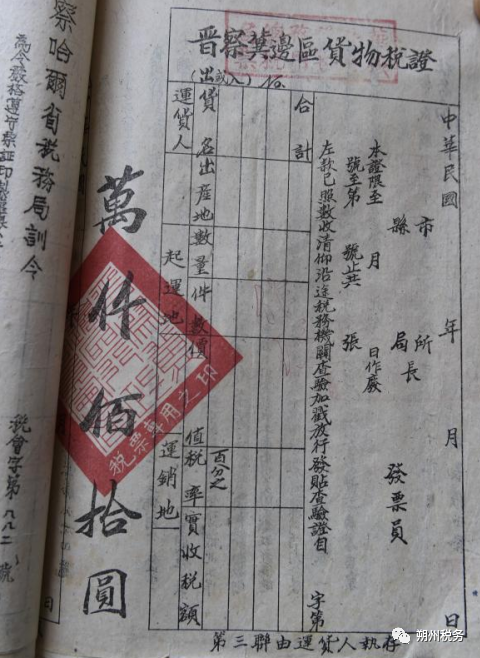 晉察冀邊區貨物稅證
(出或入)
中華民國 年 月 日
市 縣 所 局 長 發票員
本證限至 月 日作廢
號至第 號止共 張
左款已照數收清仰沿途稅務機關查驗加戳放行發貼查驗證自 字第
合計
貨名 出產地 數量 件數 價值 稅率 實收稅額
百分之
運貨人 起運地 運銷地
萬仟佰拾圓
稅票專用之印
第三聯由運貨人執存
察哈爾省稅務局訓令
稅會字第八八二號
日
朔州税务